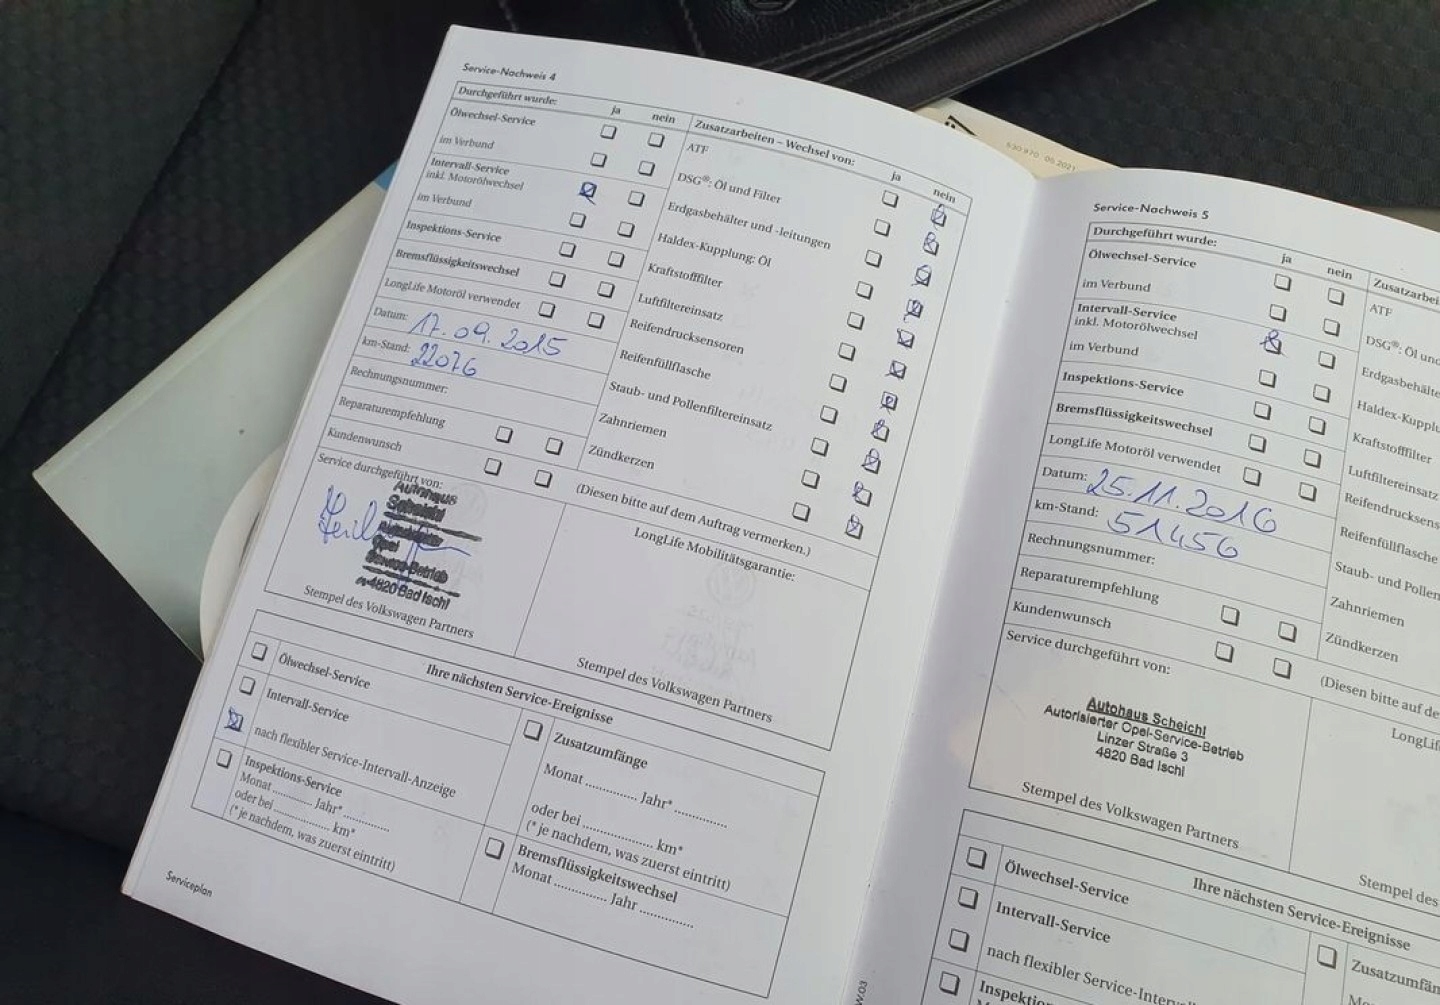 Service-Nachweis 4
Durchgeführt wurde: ja nein
Ölwechsel-Service
im Verbund
Intervall-Service
inkl. Motorölwechsel
im Verbund
Inspektions-Service
Bremsflüssigkeitswechsel
LongLife Motoröl verwendet
Datum: 17.09.2015
km-Stand: 22076
Rechnungsnummer:
Reparaturempfehlung
Kundenwunsch
Zusatzarbeiten – Wechsel von: ja nein
ATF
DSG®: Öl und Filter
Erdgasbehälter und -leitungen
Haldex-Kupplung: Öl
Kraftstofffilter
Luftfiltereinsatz
Reifendrucksensoren
Reifenfüllflasche
Staub- und Pollenfiltereinsatz
Zahnriemen
Zündkerzen
(Diesen bitte auf dem Auftrag vermerken.)
Service durchgeführt von:
Autohaus
Scheichl
Opel
Service-Betrieb
A-4820 Bad Ischl
Stempel des Volkswagen Partners
LongLife Mobilitätsgarantie:
Stempel des Volkswagen Partners
Ihre nächsten Service-Ereignisse
Ölwechsel-Service
Intervall-Service
nach flexibler Service-Intervall-Anzeige
Inspektions-Service
Monat ............ Jahr* ..............
oder bei .................. km*
(* je nachdem, was zuerst eintritt)
Zusatzumfänge
Monat .............. Jahr* ..............
oder bei .................. km*
(* je nachdem, was zuerst eintritt)
Bremsflüssigkeitswechsel
Monat .............. Jahr ..............
Serviceplan
530.970 05.2021
Service-Nachweis 5
Durchgeführt wurde: ja nein
Ölwechsel-Service
im Verbund
Intervall-Service
inkl. Motorölwechsel
im Verbund
Inspektions-Service
Bremsflüssigkeitswechsel
LongLife Motoröl verwendet
Datum: 25.11.2016
km-Stand: 51456
Rechnungsnummer:
Reparaturempfehlung
Kundenwunsch
Zusatzarbei
ATF
DSG®: Öl un
Erdgasbehälte
Haldex-Kupplu
Kraftstofffilter
Luftfiltereinsatz
Reifendrucksens
Reifenfüllflasche
Staub- und Pollen
Zahnriemen
Zündkerzen
(Diesen bitte auf de
Service durchgeführt von:
Autohaus Scheichl
Autorisierter Opel-Service-Betrieb
Linzer Straße 3
4820 Bad Ischl
Stempel des Volkswagen Partners
LongLif
Stempel des
Ihre nächsten Service-Ereignisse
Ölwechsel-Service
Intervall-Service
nach flexibler Service-Interv
Inspektion
Zusatzumfän
Monat